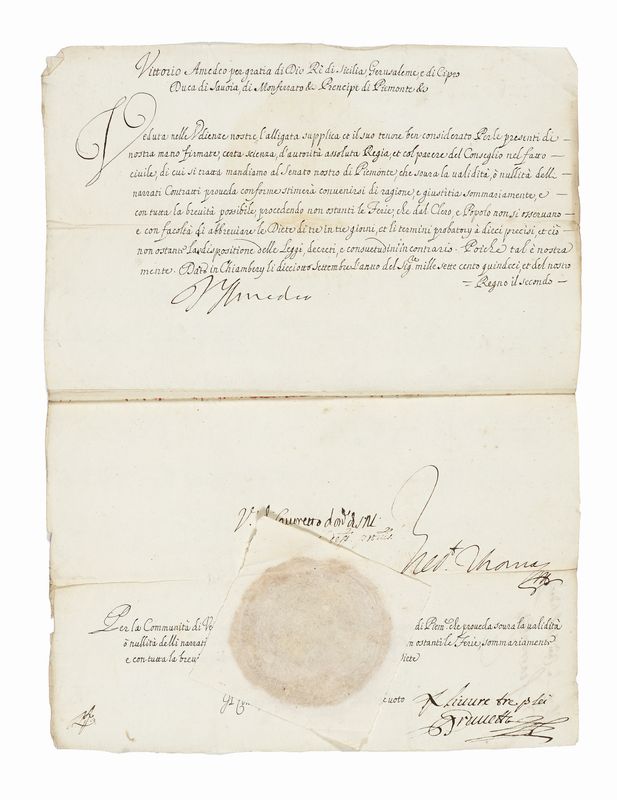 Vittorio Amedeo per gratia di Dio Rè di Sicilia, Gerusaleme, e di Cipro
Duca di Savoia, di Monferrato &, Prencipe di Piemonte &
Veduta nelle Vdienze nostre l'alligata supplica, et il suo tenore ben considerato Per le presenti di
nostra mano firmate, certa scienza, d'autorità assoluta Regia, et col parere del Conseglio nel fatto
civile, di cui si tratta mandiamo al Senato nostro di Piemonte, che soura la validità, ò nullità delli
narrati Contratti proueda conforme stimerà convenirsi di ragione, e giustitia sommariamente, e
con tutta la brevità possibile, procedendo non ostanti le Ferie, che dal Clero, e Popolo non si osseruano
e con facoltà di abbreuiare le Diete di tre in tre giorni, et li termini probatory à dieci precisi, et ciò
non ostante la dispositione delle Leggi, decreti, e consuetudini in contrario. Poiche tal è nostra
mente. Dat. in Chiambery li dicciotto Settembre l'anno del Sig.re mille sette cento quindeci, et del nostro
Regno il secondo
V Amedeo
Per la Communità di Ve di Piem.te che proueda soura la validità
ò nullità delli narrati n ostanti le Ferie, sommariamente
e con tutta la brev Diete
e uoto